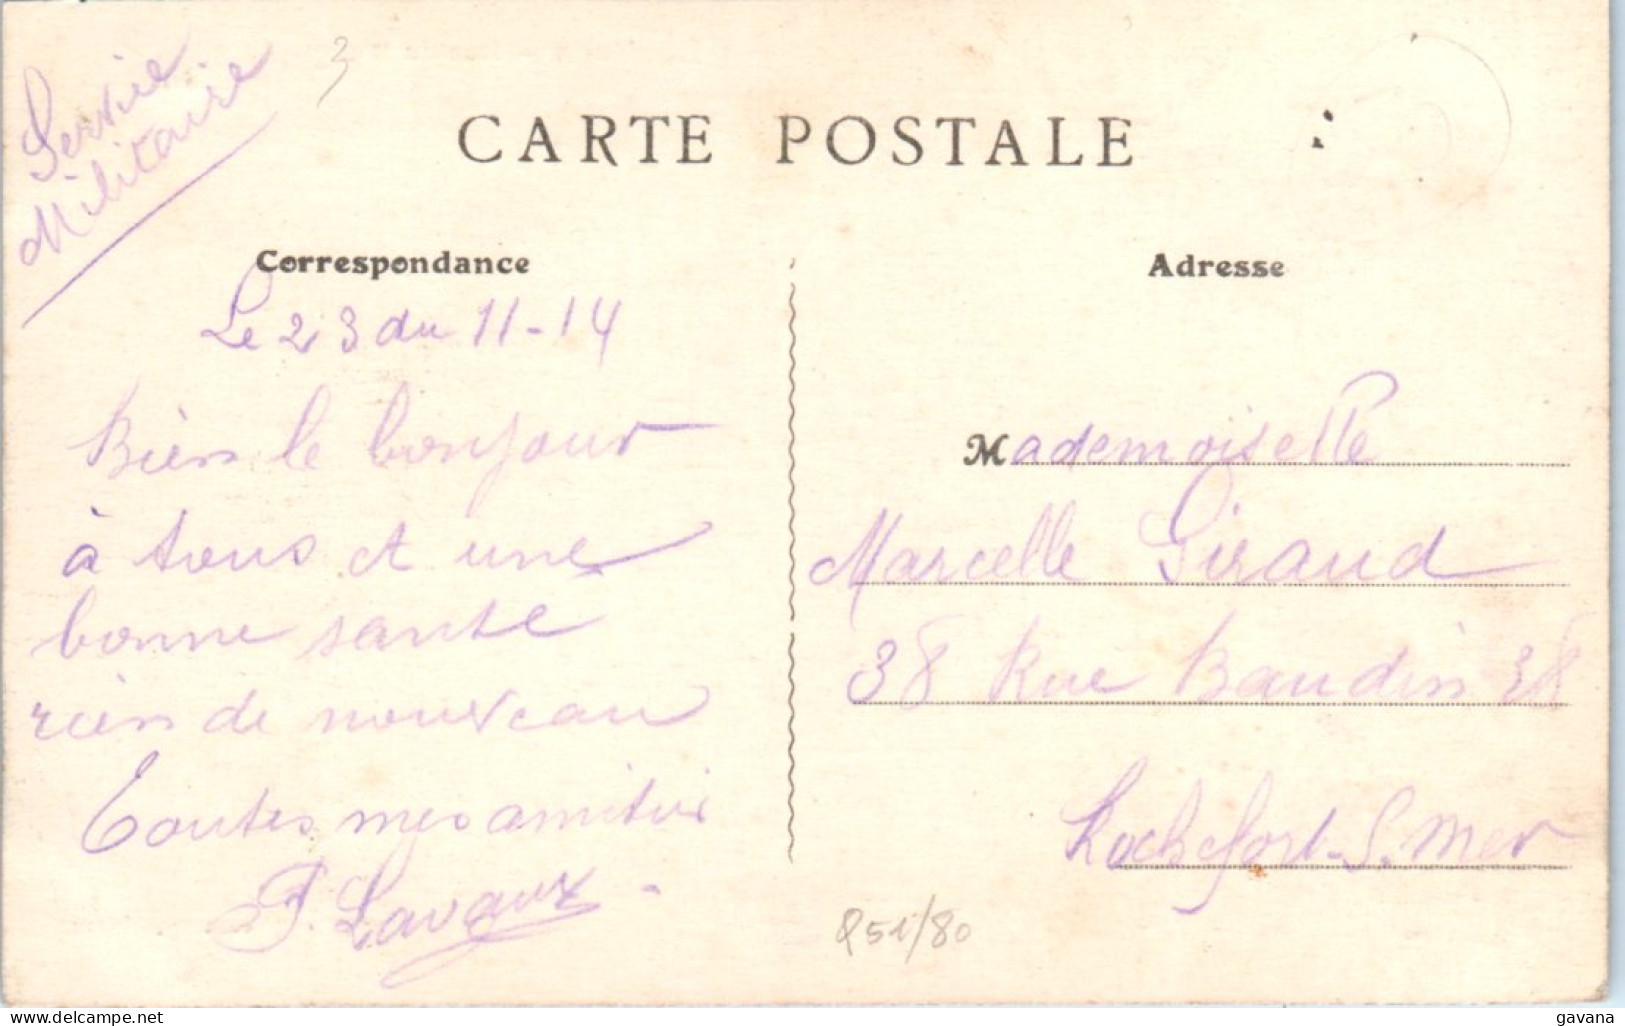 Service
Militaire
3
CARTE POSTALE
Correspondance
Le 23 du 11-14
Bien le bonjour
à tous et une
bonne santé
rien de nouveau
Toutes mes amitiés
P. Lavaux
Adresse
Mademoiselle
Marcelle Giraud
38 Rue Baudin 38
Rochefort-S. Mer
P51/80
gavana